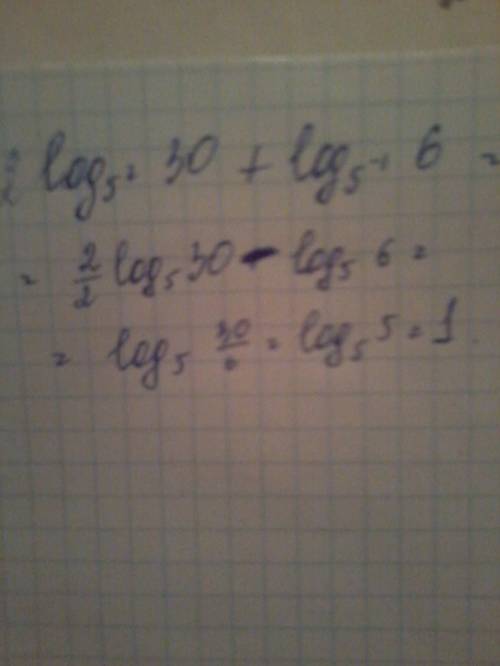 2 log₅² 30 + log₅-¹ 6 =
= 2/2 log₅ 30 - log₅ 6 =
= log₅ 30/6 = log₅ 5 = 1.